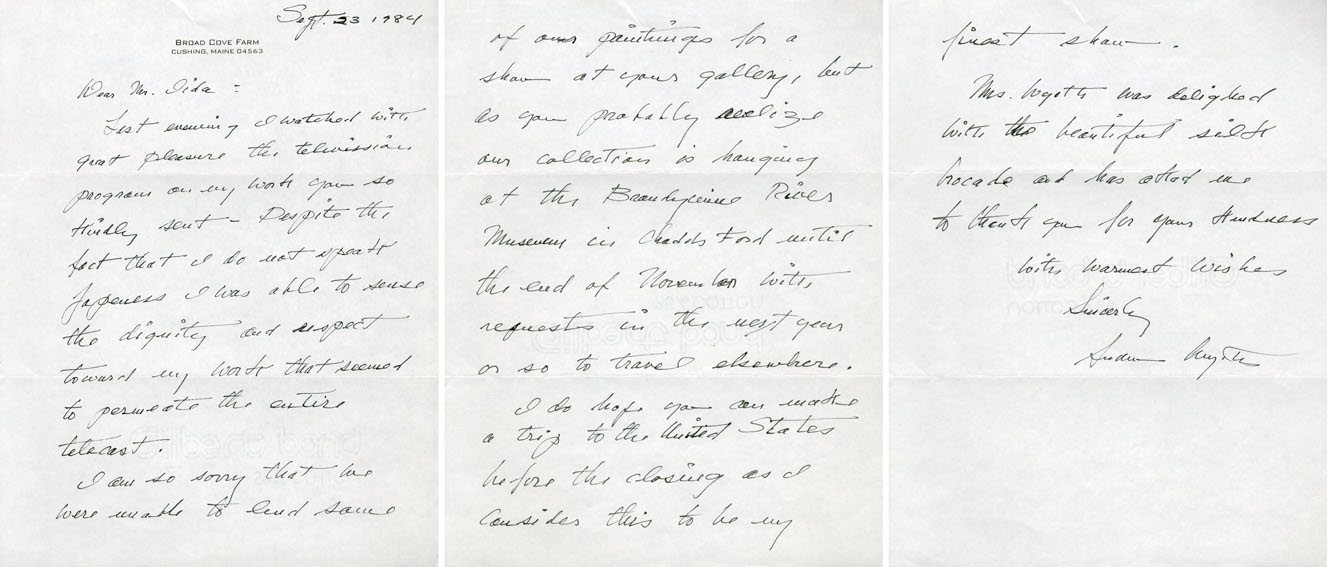 Sept. 23 1984
BROAD COVE FARM
CUSHING, MAINE 04563
Dear Mr. Iida :
Last evening I watched with
great pleasure the television
program on my work you so
kindly sent – Despite the
fact that I do not speak
Japeness I was able to sense
the dignity and respect
toward my work that seemed
to permeate the entire
telecast.
I am so sorry that we
were unable to lend some
of our paintings for a
show at your gallery, but
as you probably realize
our collection is hanging
at the Brandywine River
Museum in Chadds Ford until
the end of November with
requests in the next year
or so to travel elsewhere.
I do hope you can make
a trip to the United States
before the closing as I
consider this to be my
finest show.
Mrs. Wyeth was delighed
with the beautiful silk
brocade and has asked me
to thank you for your kindness
with warmest wishes
Sincerly
Andrew Wyeth